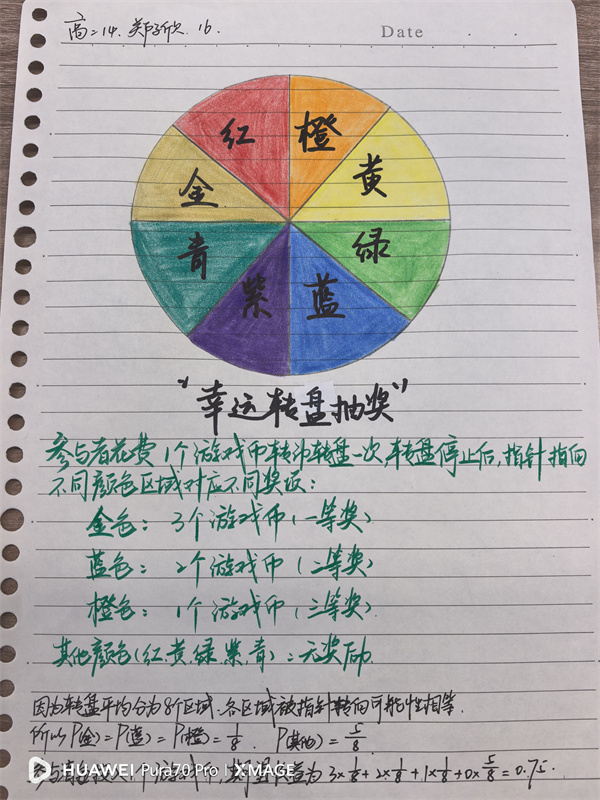 高二14. 郑欣 16.
Date
红
橙
金
黄
青
绿
紫
蓝
"幸运转盘抽奖"
参与者花费1个游戏币转动转盘一次,转盘停止后,指针指向
不同颜色区域对应不同奖项:
金色: 3个游戏币(一等奖)
蓝色: 2个游戏币(二等奖)
橙色: 1个游戏币(三等奖)
其他颜色(红,黄,绿,紫,青):无奖励
因为转盘平均分为8个区域.各区域被指针转向可能性相等.
所以P(金)=P(蓝)=P(橙)=1/8. P(其他)=5/8
游戏币, 为3×1/8+2×1/8+1×1/8+0×5/8=0.75.
HUAWEI Pura70 Pro | XMAGE